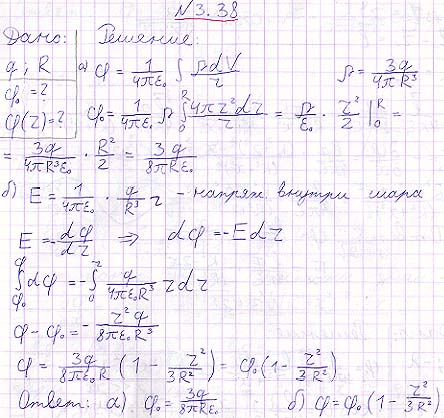 №3.38
Дано: Решение:
q; R а) φ = 1/(4πε₀) ∫ ρdV/r ρ = 3q/(4πR³)
φ₀ = ? φ₀ = 1/(4πε₀) ρ ∫₀ᴿ 4πr²dr/r = ρ/ε₀ · r²/2 |₀ᴿ =
φ(r) = ?
= 3q/(4πR³ε₀) · R²/2 = 3q/(8πRε₀)
б) E = 1/(4πε₀) · q/R³ r - напряж. внутри шара
E = -dφ/dr ⇒ dφ = -Edr
∫_φ₀^φ dφ = -∫₀ʳ q/(4πε₀R³) rdr
φ - φ₀ = - r²q/(8πε₀R³)
φ = 3q/(8πε₀R) (1 - r²/(3R²)) = φ₀(1 - r²/(3R²))
Ответ: а) φ₀ = 3q/(8πRε₀) б) φ = φ₀(1 - r²/(3R²))